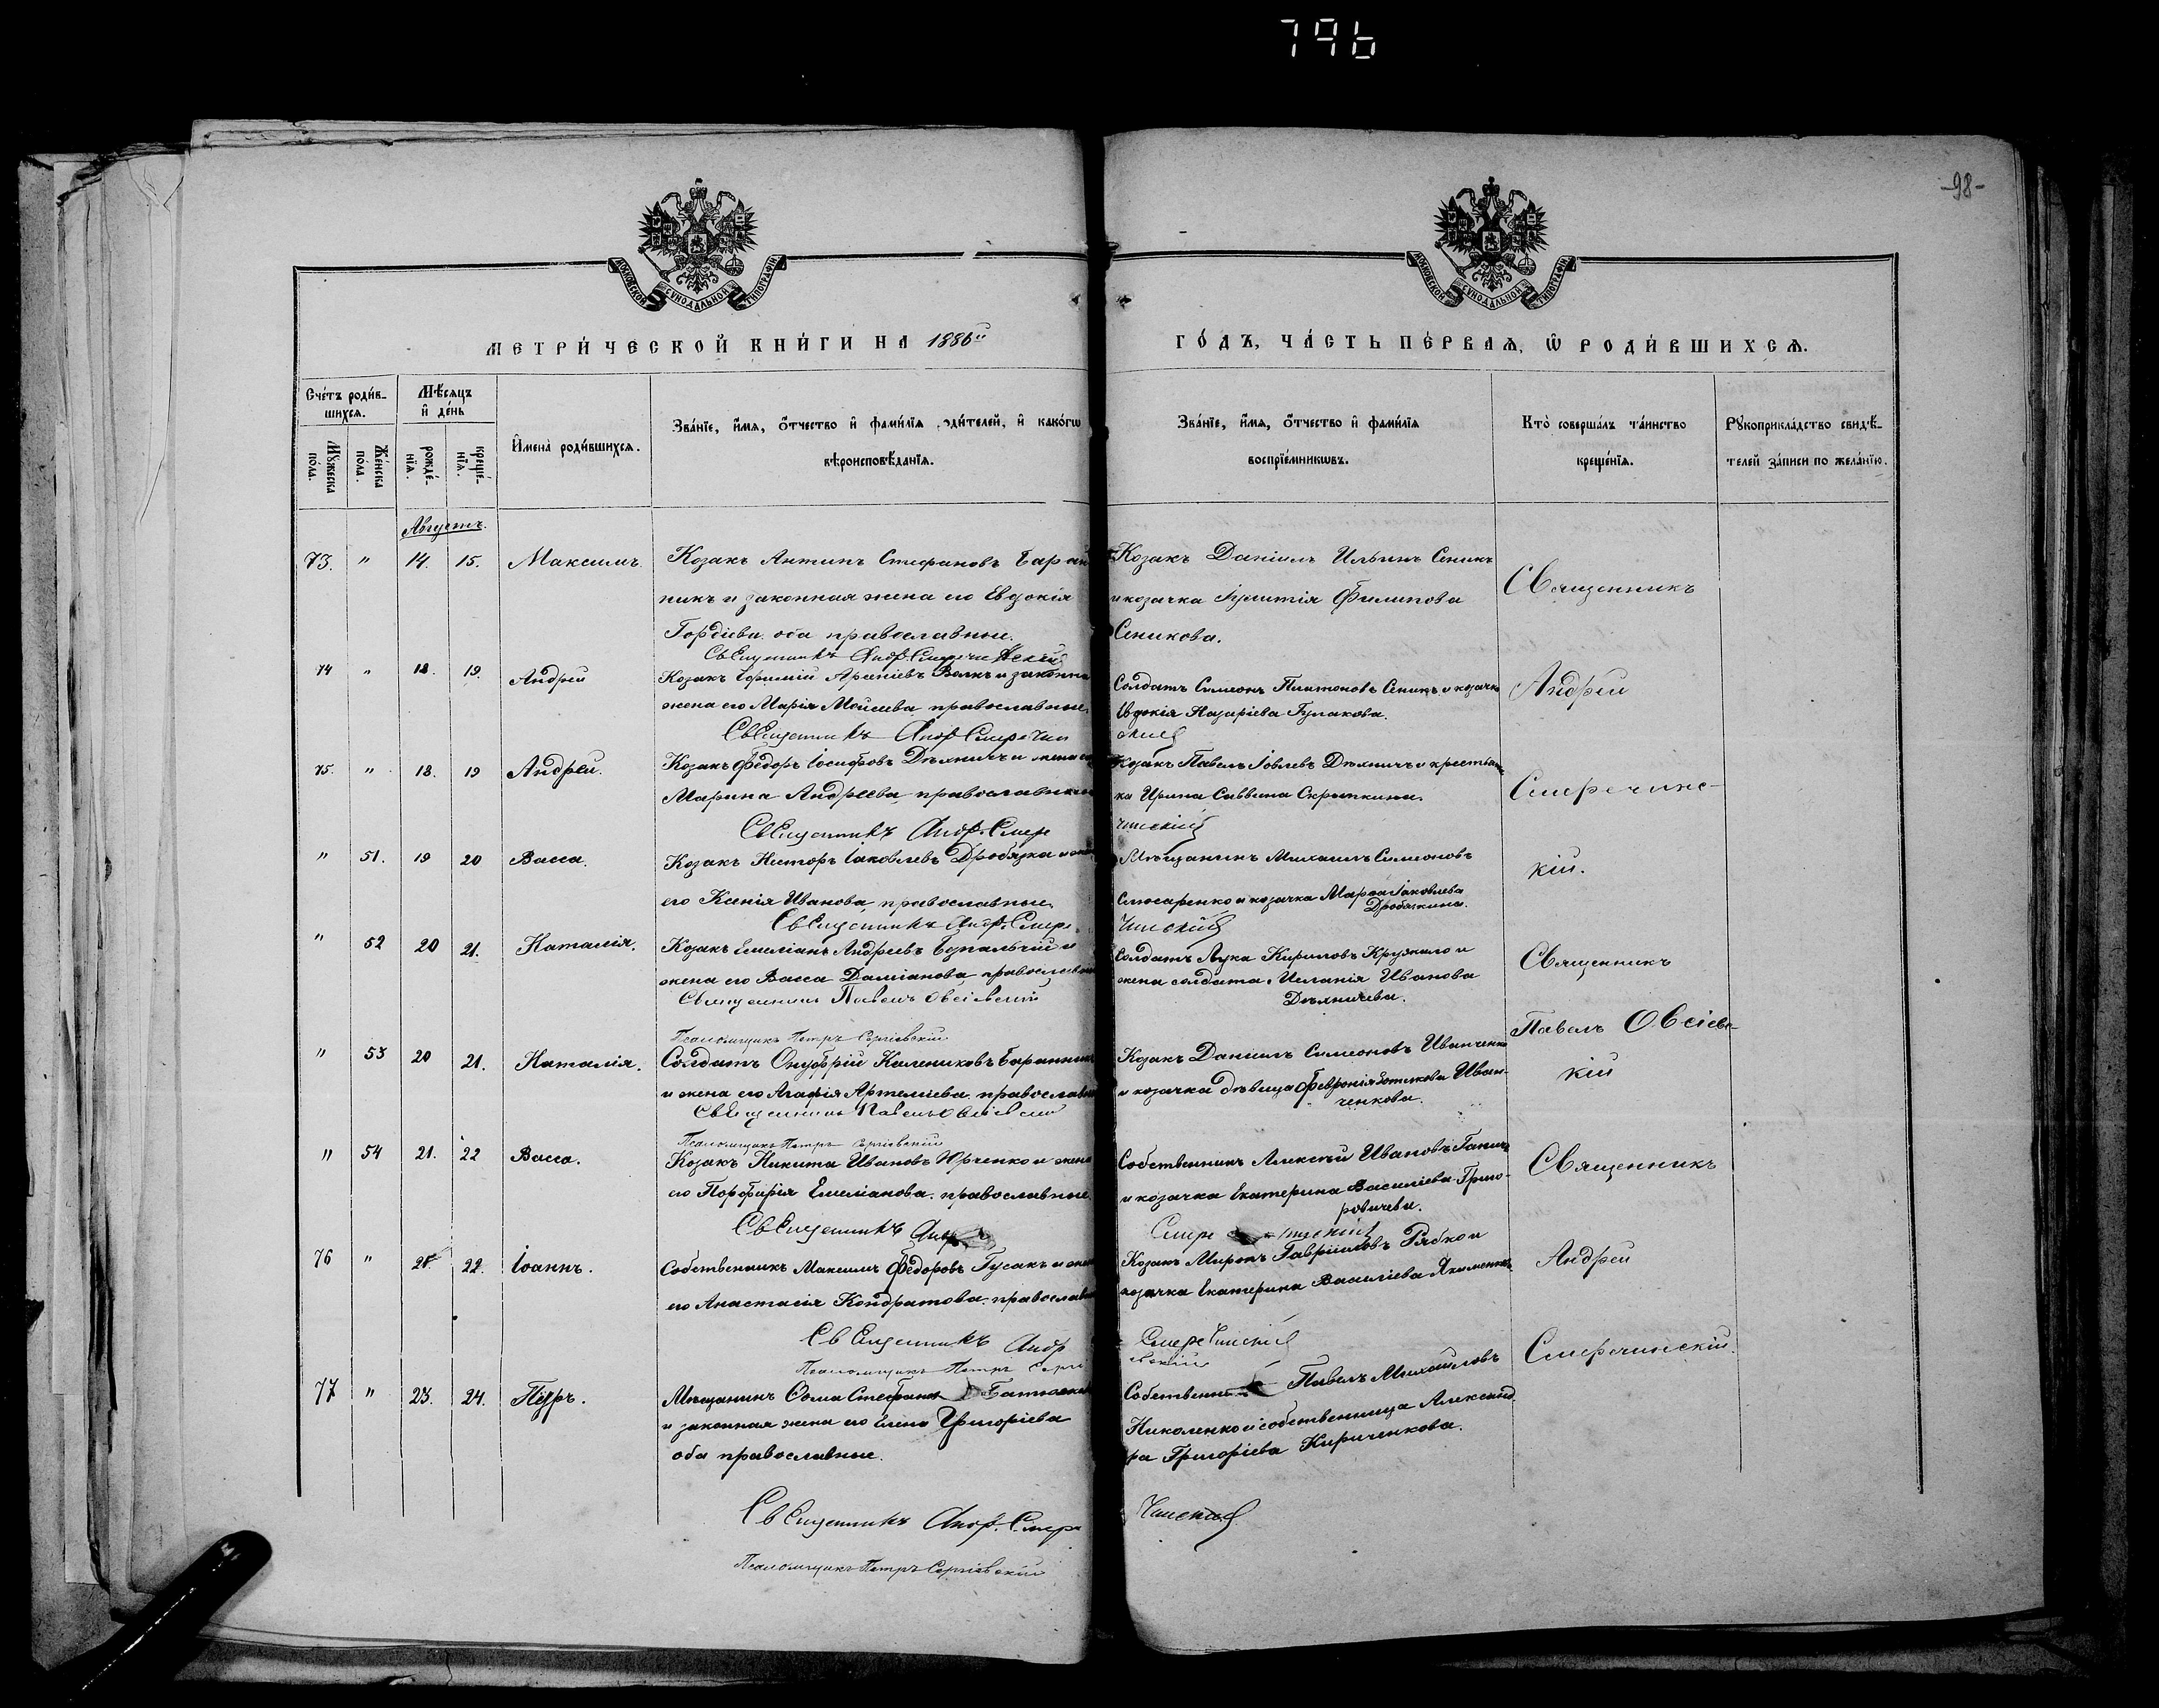 796
-98-
МОСКОВСКОЙ СѴНОДАЛЬНОЙ ТИПОГРАФІИ
МОСКОВСКОЙ СѴНОДАЛЬНОЙ ТИПОГРАФІИ
МЕТРИ́ЧЕСКОЙ КНИ́ГИ НА 1886й
ГО́ДЪ, ЧА́СТЬ ПЕ́РВАѦ, Ѽ РОДИ́ВШИХСѦ.
Сче́тъ роди́в-
шихсѧ.
Мꙋжеска по́ла.
Же́нска по́ла.
Мѣ́сѧцъ
и҆ де́нь
рожде́-
нїѧ.
креще́-
нїѧ.
И҆мена̀ роди́вшихсѧ.
Зва́нїе, и҆́мѧ, ѻ҆́тчество и҆ фами́лїѧ родителей, и҆ како́гѡ
вѣроисповѣ́данїѧ.
Зва́нїе, и҆́мѧ, ѻ҆́тчество и҆ фами́лїѧ
воспрїе́мникѡвъ.
Кто̀ соверша́лъ та́инство
креще́нїѧ.
Рꙋкоприкла́дство свидѣ́-
телей за́писи по жела́нїю.
Августъ.
73. " 14. 15. Максимъ.
Козакъ Антипъ Стефановъ Баран
никъ и законная жена его Евдокія
Гордіева. оба православные.
Священникъ Андр. Смеречинскій
Козакъ Даніилъ Ильинъ Сеникъ
и козачка Филипова
Сеникова.
Священникъ
74 " 18. 19. Андрей
Козакъ Ефимій Арсеніевъ Волкъ и законна
жена его Марія Моісеева православные.
Священникъ Андр Смеречин
Солдатъ Симеонъ Платоновъ Сеникъ и козачка
Евдокія Назаріева Гулакова.
скій
Андрей
75. " 18. 19 Андрей.
Козакъ Ѳедоръ Іосифовъ Дѣхничъ и жена его
Марина Андреева православные
Священникъ Андр. Смере
Козакъ Павелъ Іовлевъ Дѣхничъ и крестьян-
ка Ирина Саввина Скрыпкина.
чинскій
Смеречинс-
" 51. 19 20 Васса.
Козакъ Несторъ Іаковлевъ Дробязка и жена
его Ксенія Иванова православные.
Священникъ Андр. Смере
Мѣщанинъ Михаилъ Симеоновъ
Слюсаренко и козачка Марѳа Іаковлева
Дробязкина.
чинскій
кій.
" 52 20 21. Наталія.
Козакъ Емеліанъ Андреевъ и
жена его Васса Даміанова православные
Священникъ Павелъ Овсіевскій
Солдатъ Лука Кириловъ Кружило и
жена солдата Меланія Иванова
Дѣхничева.
Священникъ
Павелъ Овсіевс-
кій
Псаломщикъ Петръ Сергіевскій
" 53 20 21. Наталія.
Солдатъ Онуфрій Калениковъ Баранникъ
и жена его Агафія Артеміева. православные
Священникъ Павелъ Овсіевскій
Козакъ Даніилъ Симеоновъ Иванченко
и козачка дѣвица Февронія Иван-
ченкова.
Псаломщикъ Петръ Сергіевскій
" 54 21. 22 Васса.
Козакъ Никита Ивановъ Юрченко и жена
его Порфирія Емеліанова. православные.
Священникъ Андр
Собственникъ Алексѣй Ивановъ
и козачка Екатерина Василіева Григо-
ровичева.
Смере чинскій
Священникъ
76 " 22. Іоаннъ.
Собственникъ Максимъ Ѳедоровъ Гусакъ и жена
его Анастасія Кондратова. православные
Священникъ Андр
Козакъ Миронъ Гавріиловъ Рябко и
козачка Екатерина Василіева Якименк
Смеречинскій
Андрей
Псаломщикъ Петръ Сергі
евскій
77 " 23. 24. Петръ.
Мѣщанинъ Ѳома
и законная жена его Елена Григоріева
оба православные.
Собственникъ Павелъ Михайловъ
Николенко и собственница Александ
ра Григоріева Кириченкова.
Смеречинскій.
Священникъ Андр. Смере
чинскій
Псаломщикъ Петръ Сергіевскій